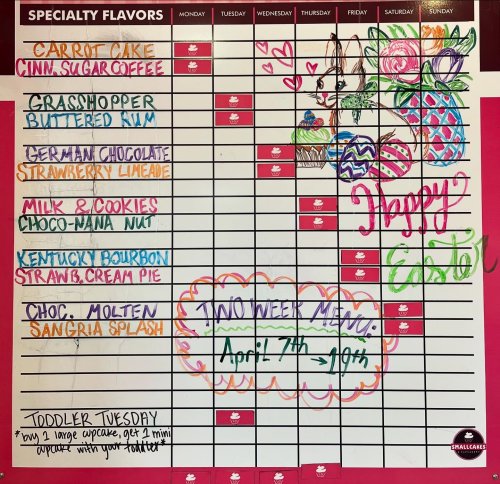 SPECIALTY FLAVORS MONDAY TUESDAY WEDNESDAY THURSDAY FRIDAY SATURDAY SUNDAY
CARROT CAKE
CINN. SUGAR COFFEE
GRASSHOPPER
BUTTERED RUM
GERMAN CHOCOLATE
STRAWBERRY LIMEADE
MILK & COOKIES
CHOCO-NANA NUT
Happy
KENTUCKY BOURBON
STRAWB. CREAM PIE
Easter
CHOC. MOLTEN
SANGRIA SPLASH
TWO WEEK MENU:
April 7th → 19th
TODDLER TUESDAY
*buy 1 large cupcake, get 1 mini
cupcake with your toddler*
SMALLCAKES